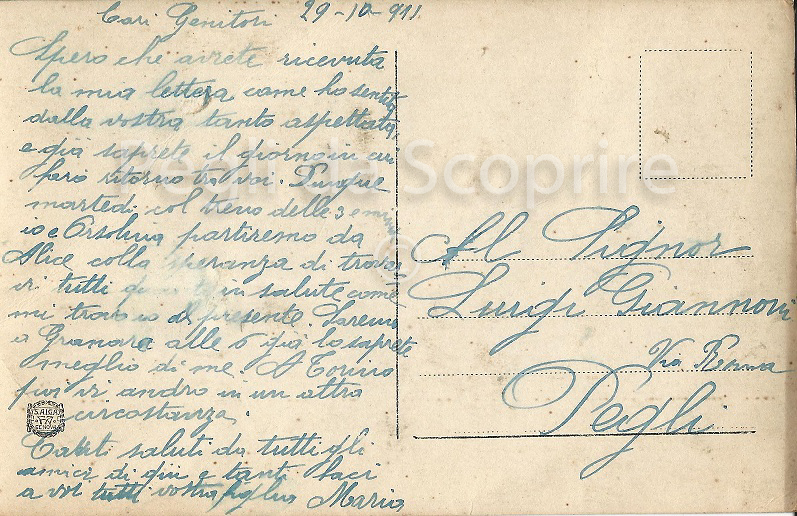 Cari Genitori 29-10-911
Spero che avrete ricevuta
la mia lettera come ho sentito
dalla vostra tanto aspettata,
e già saprete il giorno in cui
farò ritorno tra voi. Dunque
martedì col treno delle 3 e
io e Orsolina partiremo da
Alice colla speranza di trovar
vi tutti in salute come
mi trovo io al presente. Saremo
a Genova alle 6 già lo saprete
meglio di me. A Torino
poi vi andrò in un altra
circostanza.
Tanti saluti da tutti gli
amici di qui e tanti baci
a voi tutti vostra figlia Maria
Al Signor
Luigi Giannoni
Via Roma
Pegli
Pegli da Scoprire
©
GENOVA